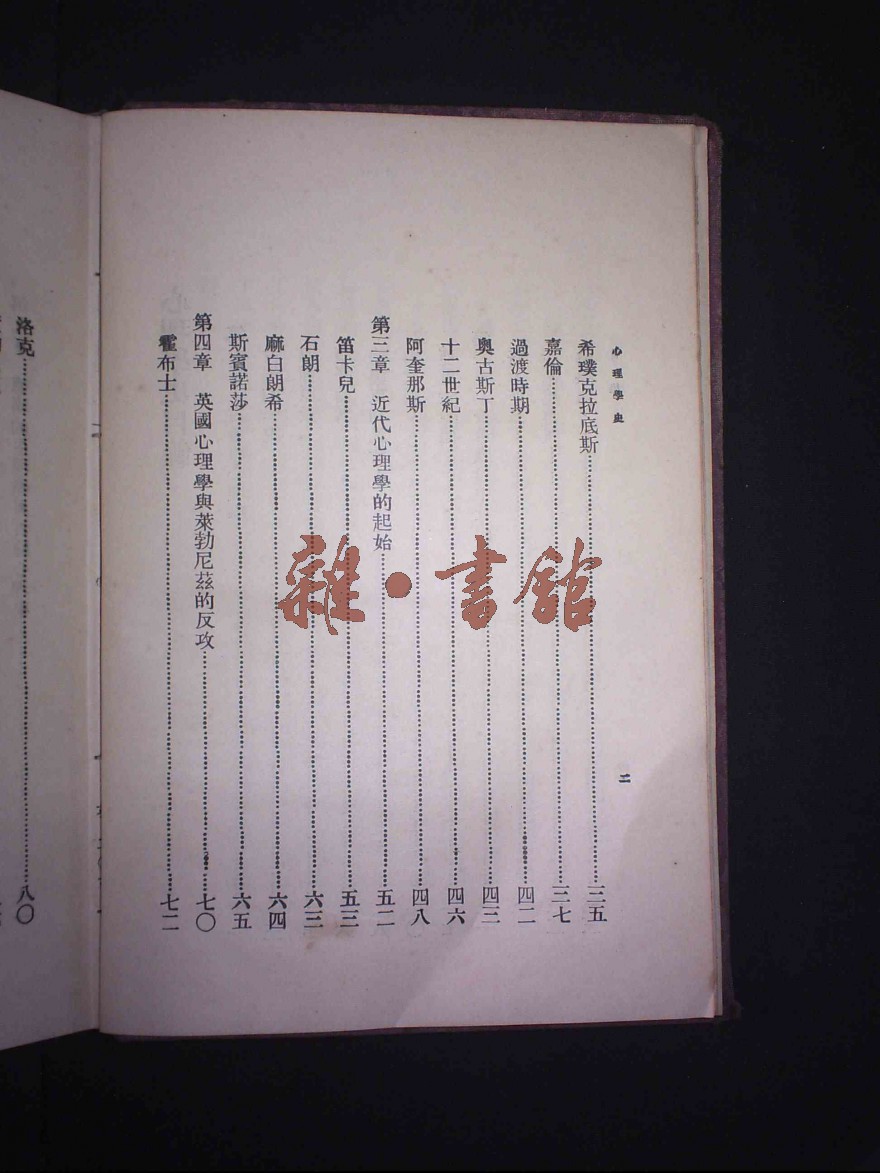 心理學史
二
希璞克拉底斯……三五
嘉倫……三七
過渡時期……四二
奧古斯丁……四三
十二世紀……四六
阿奎那斯……四八
第三章　近代心理學的起始……五二
笛卡兒……五三
石朗……六三
麻白朗希……六四
斯賓諾莎……六五
第四章　英國心理學與萊勃尼茲的反攻……七〇
霍布士……七二
洛克……八〇
雜·書館